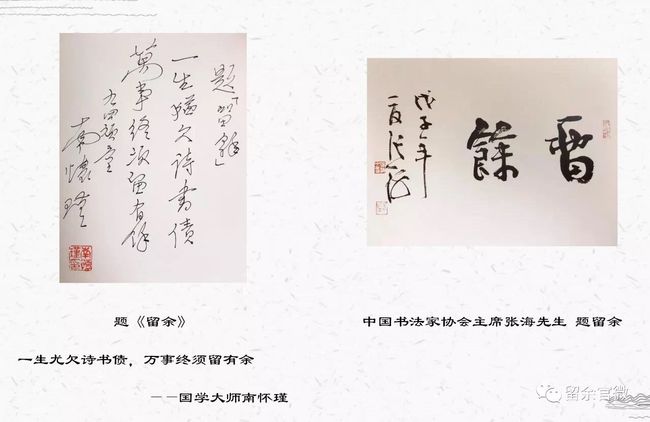 題「留餘」
一生猶欠詩書債
萬事終須留有餘
九四頑童
南懷瑾
留餘
戊子年
夏張海
题《留余》
一生尤欠诗书债，万事终须留有余
——国学大师南怀瑾
中国书法家协会主席张海先生 题留余
留余官微